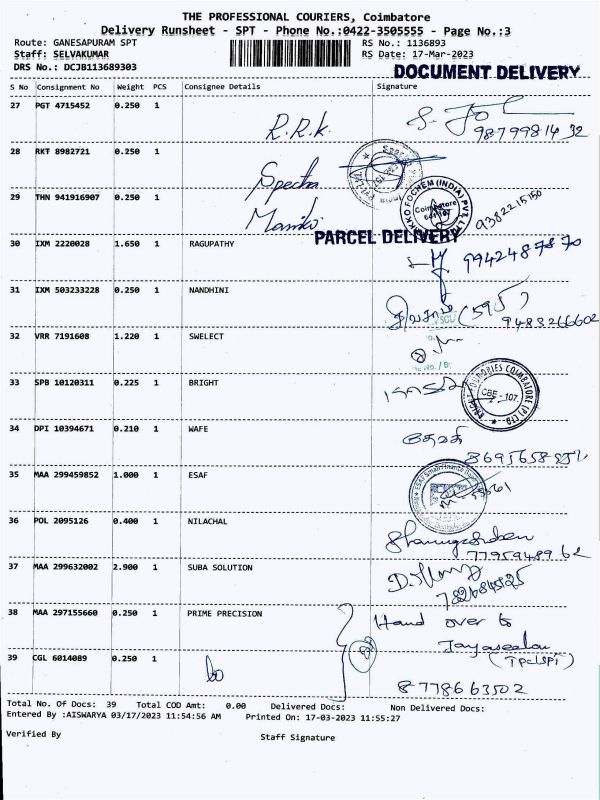 THE PROFESSIONAL COURIERS, Coimbatore
Delivery Runsheet - SPT - Phone No.:0422-3505555 - Page No.:3
Route: GANESAPURAM SPT RS No.: 1136893
Staff: SELVAKUMAR RS Date: 17-Mar-2023
DRS No.: DCJB113689303
DOCUMENT DELIVERY
S No Consignment No Weight PCS Consignee Details Signature
27 PGT 4715452 0.250 1 R.R.K.
9879981432
28 RKT 8982721 0.250 1 Spectra
29 THN 941916907 0.250 1 9382215150
NIKKO FOCHEM (INDIA) PVT. LTD
Coimbatore
PARCEL DELIVERY
30 IXM 2220028 1.650 1 RAGUPATHY 9942487870
31 IXM 503233228 0.250 1 NANDHINI
9483266602
32 VRR 7191608 1.220 1 SWELECT
33 SPB 10120311 0.225 1 BRIGHT
BRIGHT FOUNDARIES COIMBATORE (P) LTD
CBE - 107.
34 DPI 10394671 0.210 1 WAFE
35 MAA 299459852 1.000 1 ESAF
ESAF Small Finance Bank
36 POL 2095126 0.400 1 NILACHAL
7795948962
37 MAA 299632002 2.900 1 SUBA SOLUTION
38 MAA 297155660 0.250 1 PRIME PRECISION Hand over to
Jayaseelan
39 CGL 6014089 0.250 1
8778663502
Total No. Of Docs: 39 Total COD Amt: 0.00 Delivered Docs: Non Delivered Docs:
Entered By :AISWARYA 03/17/2023 11:54:56 AM Printed On: 17-03-2023 11:55:27
Verified By Staff Signature